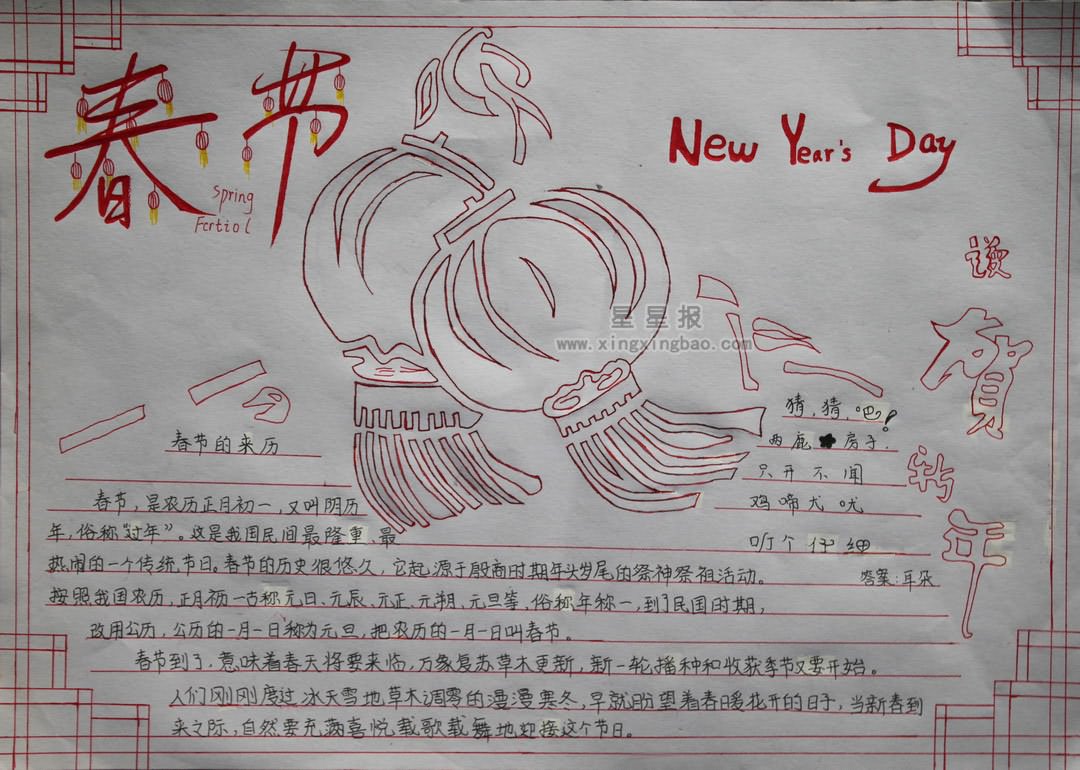 春节
Spring
Fertiol
New Year's Day
谩
贺
新
年
星星报
www.xingxingbao.com
春节的来历
春节，是农历正月初一，又叫阴历
年，俗称“过年”。这是我国民间最隆重、最
热闹的一个传统节日。春节的历史很悠久，它起源于殷商时期年头岁尾的祭神祭祖活动。
按照我国农历，正月初一古称元日、元辰、元正、元朔、元旦等，俗称年称一，到了民国时期，
改用公历，公历的一月一日称为元旦，把农历的一月一日叫春节。
春节到了，意味着春天将要来临，万象复苏草木更新，新一轮播种和收获季节又要开始。
人们刚刚度过冰天雪地草木凋零的漫漫寒冬，早就盼望着春暖花开的日子，当新春到
来之际，自然要充满喜悦载歌载舞地迎接这个节日。
猜，猜，吧！
两鹿房子
只开不闻
鸡啼犬吠
听个仔细
答案：耳朵